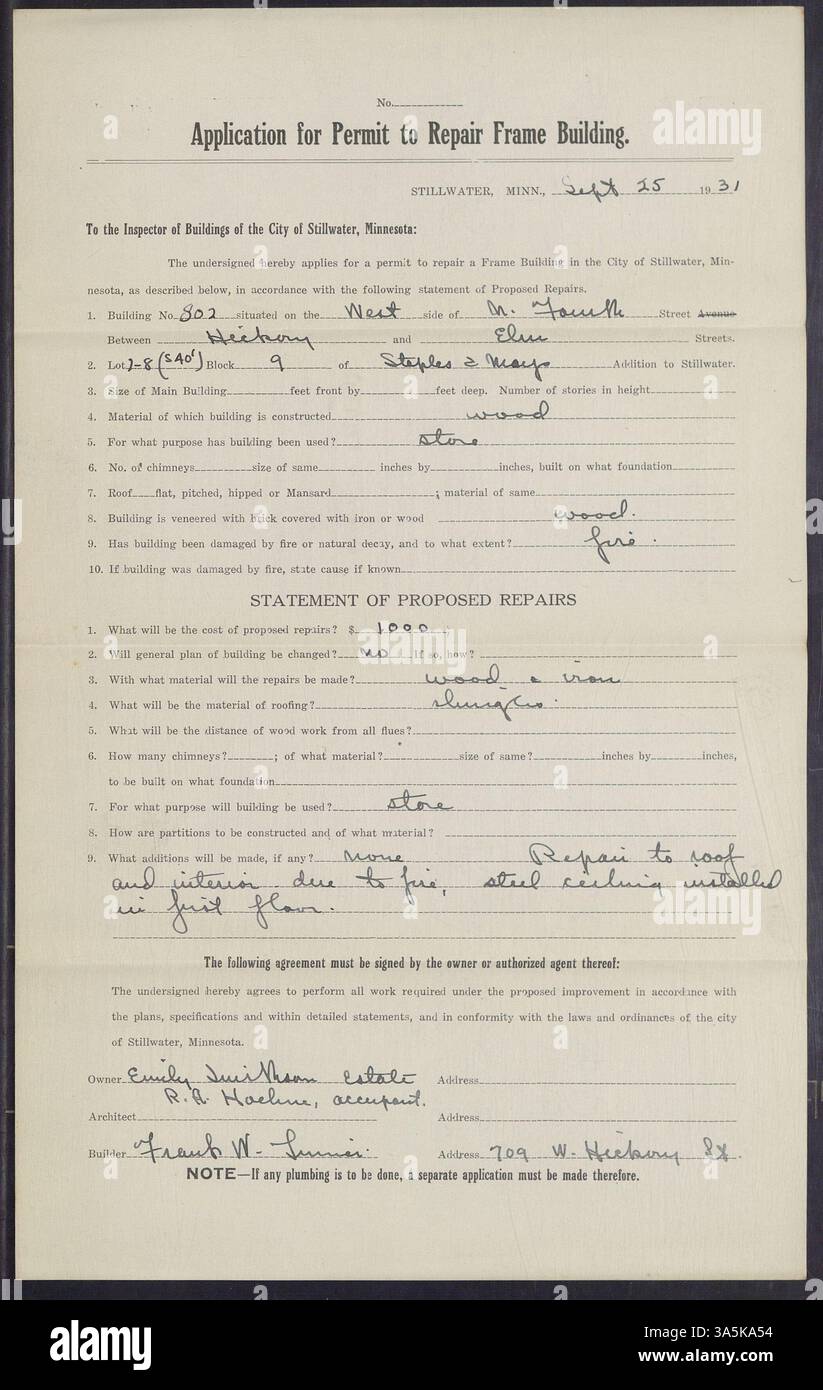 No.
Application for Permit to Repair Frame Building.
STILLWATER, MINN., Sept 25 1931
To the Inspector of Buildings of the City of Stillwater, Minnesota:
The undersigned hereby applies for a permit to repair a Frame Building in the City of Stillwater, Min-
nesota, as described below, in accordance with the following statement of Proposed Repairs.
1. Building No 802 situated on the West side of N. Fourth Street Avenue
Between Hickory and Elm Streets.
2. Lot 7-8 (S 40') Block 9 of Staples & Mays Addition to Stillwater.
3. Size of Main Building feet front by feet deep. Number of stories in height
4. Material of which building is constructed wood
5. For what purpose has building been used? store
6. No. of chimneys size of same inches by inches, built on what foundation
7. Roof flat, pitched, hipped or Mansard ; material of same
8. Building is veneered with brick covered with iron or wood wood.
9. Has building been damaged by fire or natural decay, and to what extent? fire.
10. If building was damaged by fire, state cause if known
STATEMENT OF PROPOSED REPAIRS
1. What will be the cost of proposed repairs? $ 1000
2. Will general plan of building be changed? no If so, how?
3. With what material will the repairs be made? wood & iron
4. What will be the material of roofing? shingles.
5. What will be the distance of wood work from all flues?
6. How many chimneys? ; of what material? size of same? inches by inches,
to be built on what foundation
7. For what purpose will building be used? store
8. How are partitions to be constructed and of what material?
9. What additions will be made, if any? none Repair to roof
and interior due to fire, steel ceiling installed
in first floor.
The following agreement must be signed by the owner or authorized agent thereof:
The undersigned hereby agrees to perform all work required under the proposed improvement in accordance with
the plans, specifications and within detailed statements, and in conformity with the laws and ordinances of the city
of Stillwater, Minnesota.
Owner Emily Smithson Estate Address
R. A. occupant.
Architect Address
Builder Frank W. Address 709 W. Hickory St.
NOTE—If any plumbing is to be done, a separate application must be made therefore.
alamy
Image ID: 3A5KA54
www.alamy.com